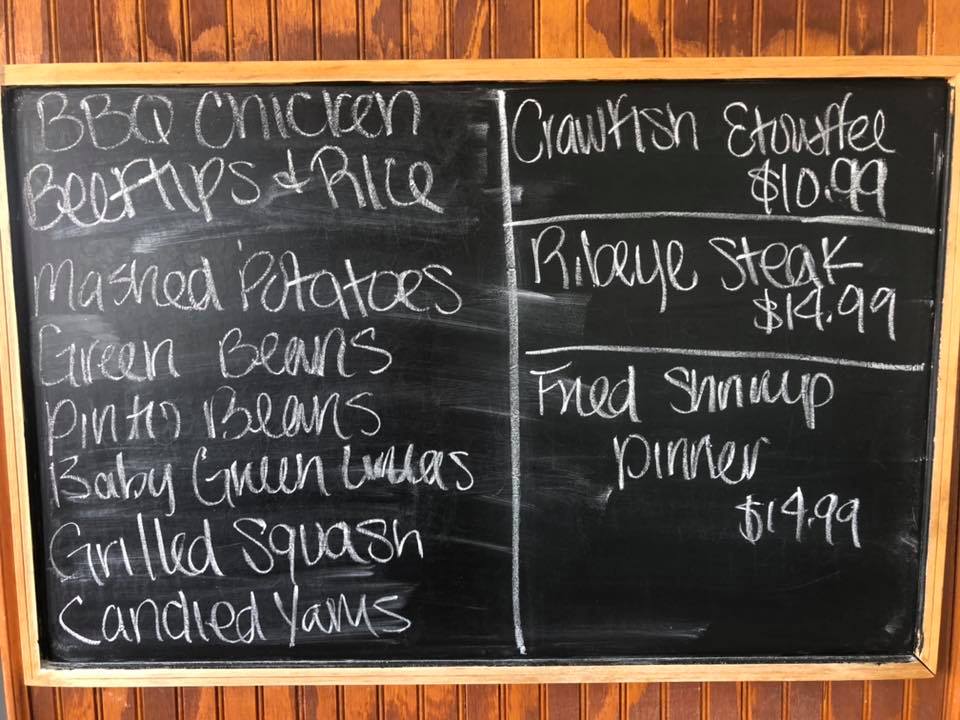 BBQ Chicken
Beeftips & Rice
Mashed Potatoes
Green Beans
Pinto Beans
Baby Green Limas
Grilled Squash
Candied Yams
Crawfish Etouffee
$10.99
Ribeye Steak
$14.99
Fried Shrimp
Dinner
$14.99